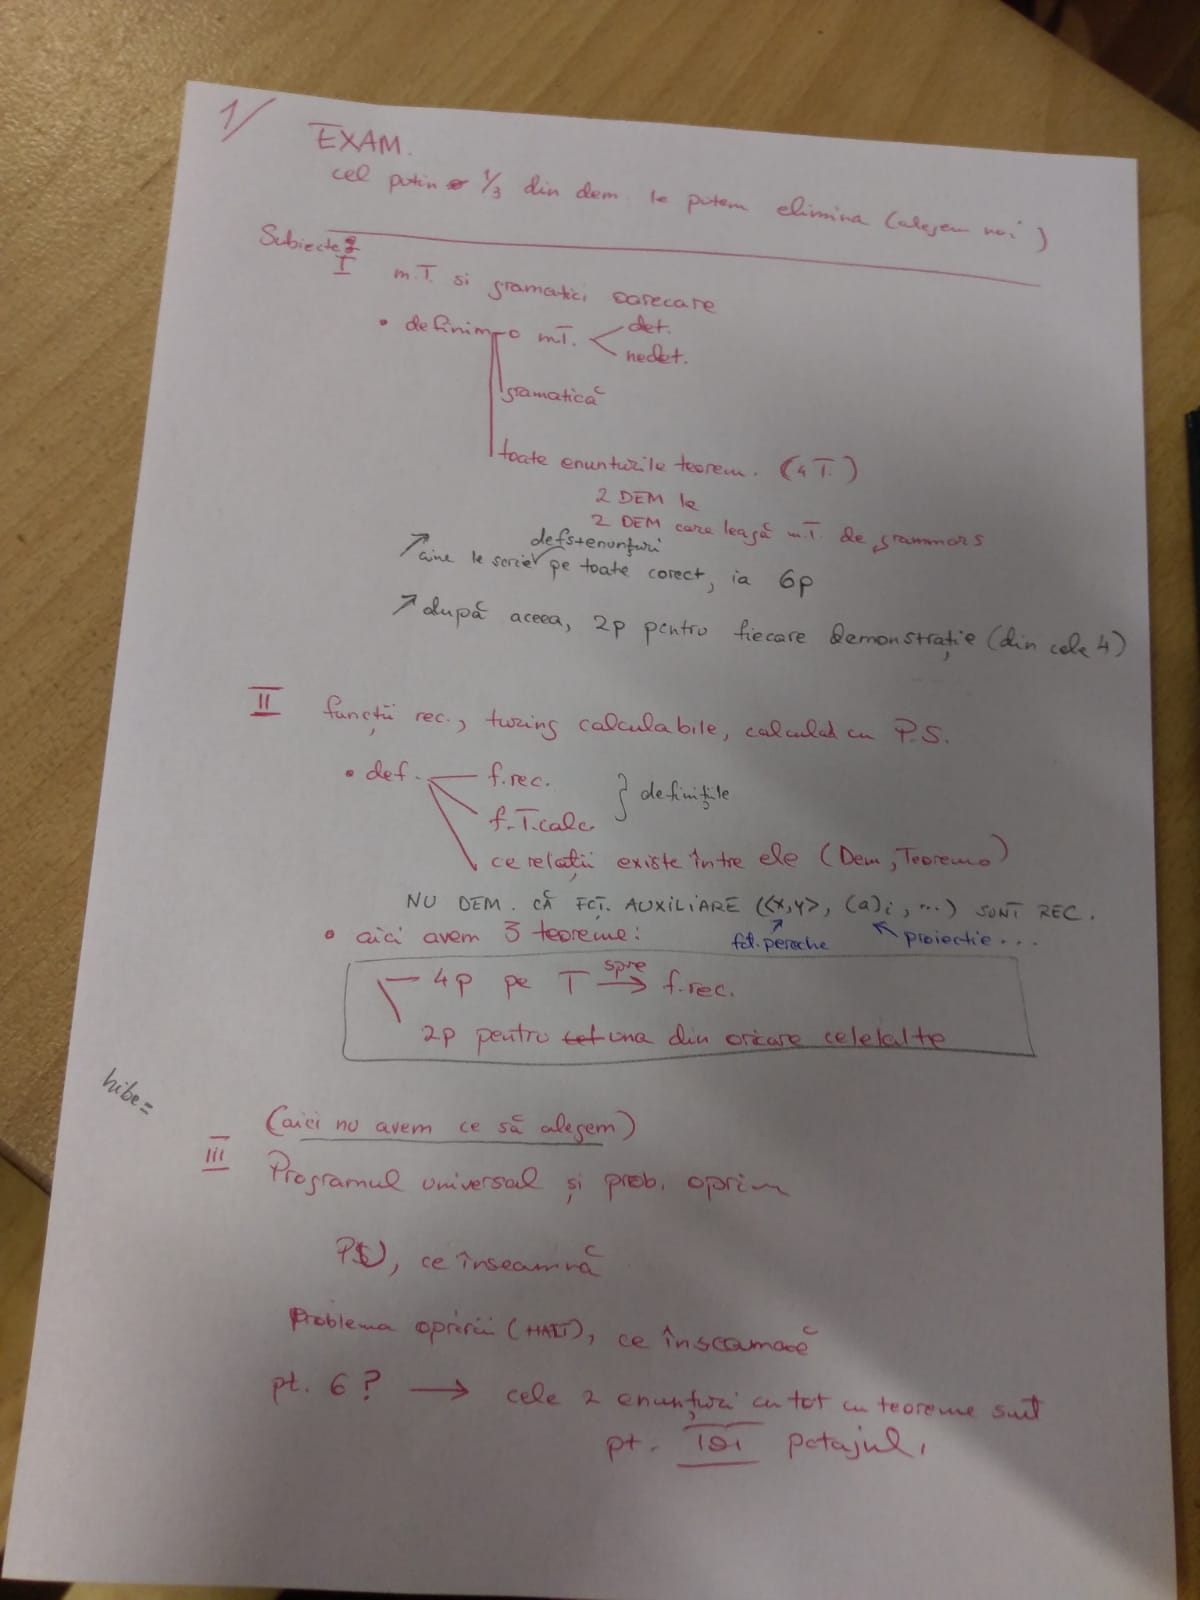 1/
EXAM.
cel putin 1/3 din dem. le putem elimina (alegem noi)
Subiecte
I m.T. si gramatici oarecare
• definim o m.T. det.
nedet.
gramatică
toate enunturile teorem. (4 T.)
2 DEM le
2 DEM care leagă m.T. de grammars
defs+enunțuri
cine le scrie pe toate corect, ia 6p
după aceea, 2p pentru fiecare demonstrație (din cele 4)
II funcții rec., turing calculabile, calculat cu P.S.
• def. f.rec.
} definițiile
f.T.calc.
ce relații există între ele (Dem, Teoreme)
NU DEM. CĂ FCȚ. AUXILIARE (<x,y>, (a)i, ...) SUNT REC.
• aici avem 3 teoreme: fct. pereche proiectie...
4p pe T spre → f.rec.
2p pentru una din oricare celelalte
(aici nu avem ce să alegem)
III Programul universal și prob. opririi
, ce înseamnă
Problema opririi (HALT), ce înseamnă
pt. 6? → cele 2 enunțuri cu tot cu teoreme sunt
pt. TOT